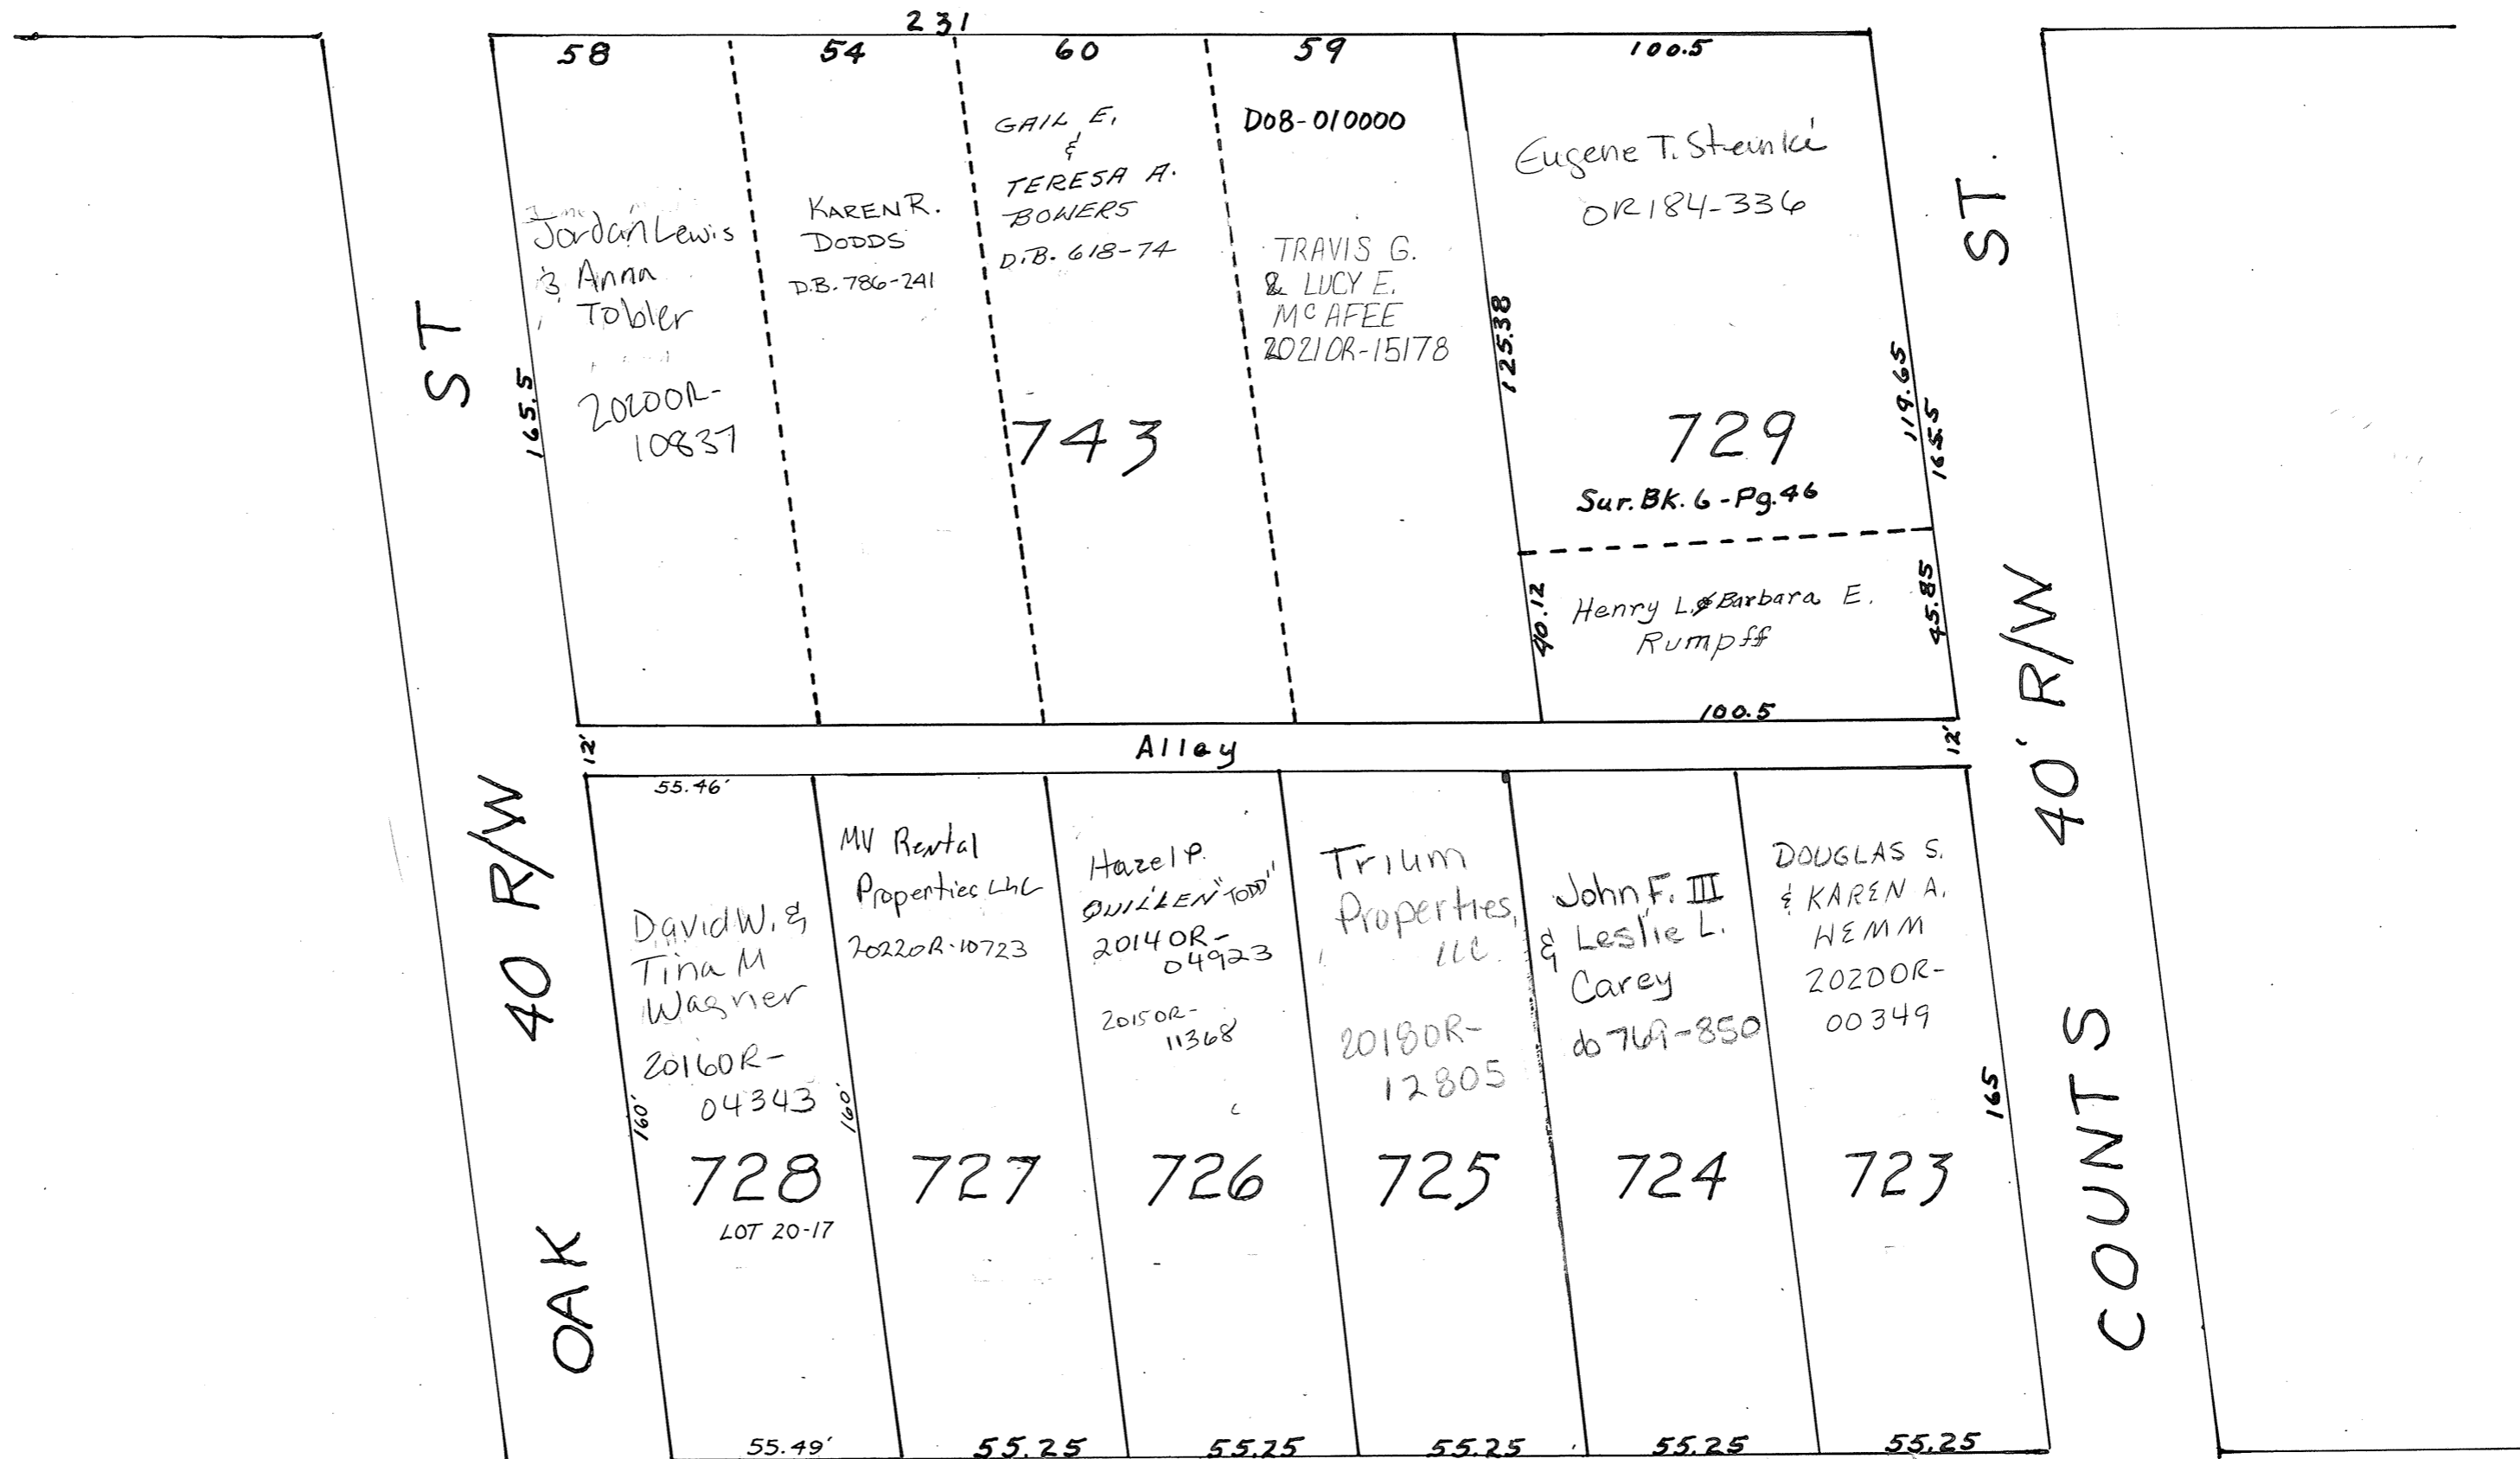 231
58
54
60
59
100.5
Jordan Lewis
& Anna
Tobler
2020OR-
10837
165.5
KAREN R.
DODDS
D.B. 786-241
GAIL E.
&
TERESA A.
BOWERS
D.B. 618-74
743
D08-010000
TRAVIS G.
& LUCY E.
McAFEE
2021OR-15178
Eugene T. Steinke
OR184-336
125.38
729
Sur. BK. 6 - Pg. 46
119.65
165.5
40.12
Henry L. & Barbara E.
Rumpff
45.85
100.5
12'
Alley
12'
55.46'
David W. &
Tina M
Wagner
2016OR-
04343
160'
160'
728
LOT 20-17
55.49'
MV Rental
Properties LLC
2022OR-10723
727
55.25
Hazel P.
QUILLEN "TODD"
2014OR-
04923
2015OR-
11368
726
55.25
Trium
Properties,
LLC
2018OR-
12805
725
55.25
John F. III
& Leslie L.
Carey
db 769-850
724
55.25
DOUGLAS S.
& KAREN A.
HEMM
2020OR-
00349
165
723
55.25
OAK 40 R/W ST
COUNTS 40' R/W ST.